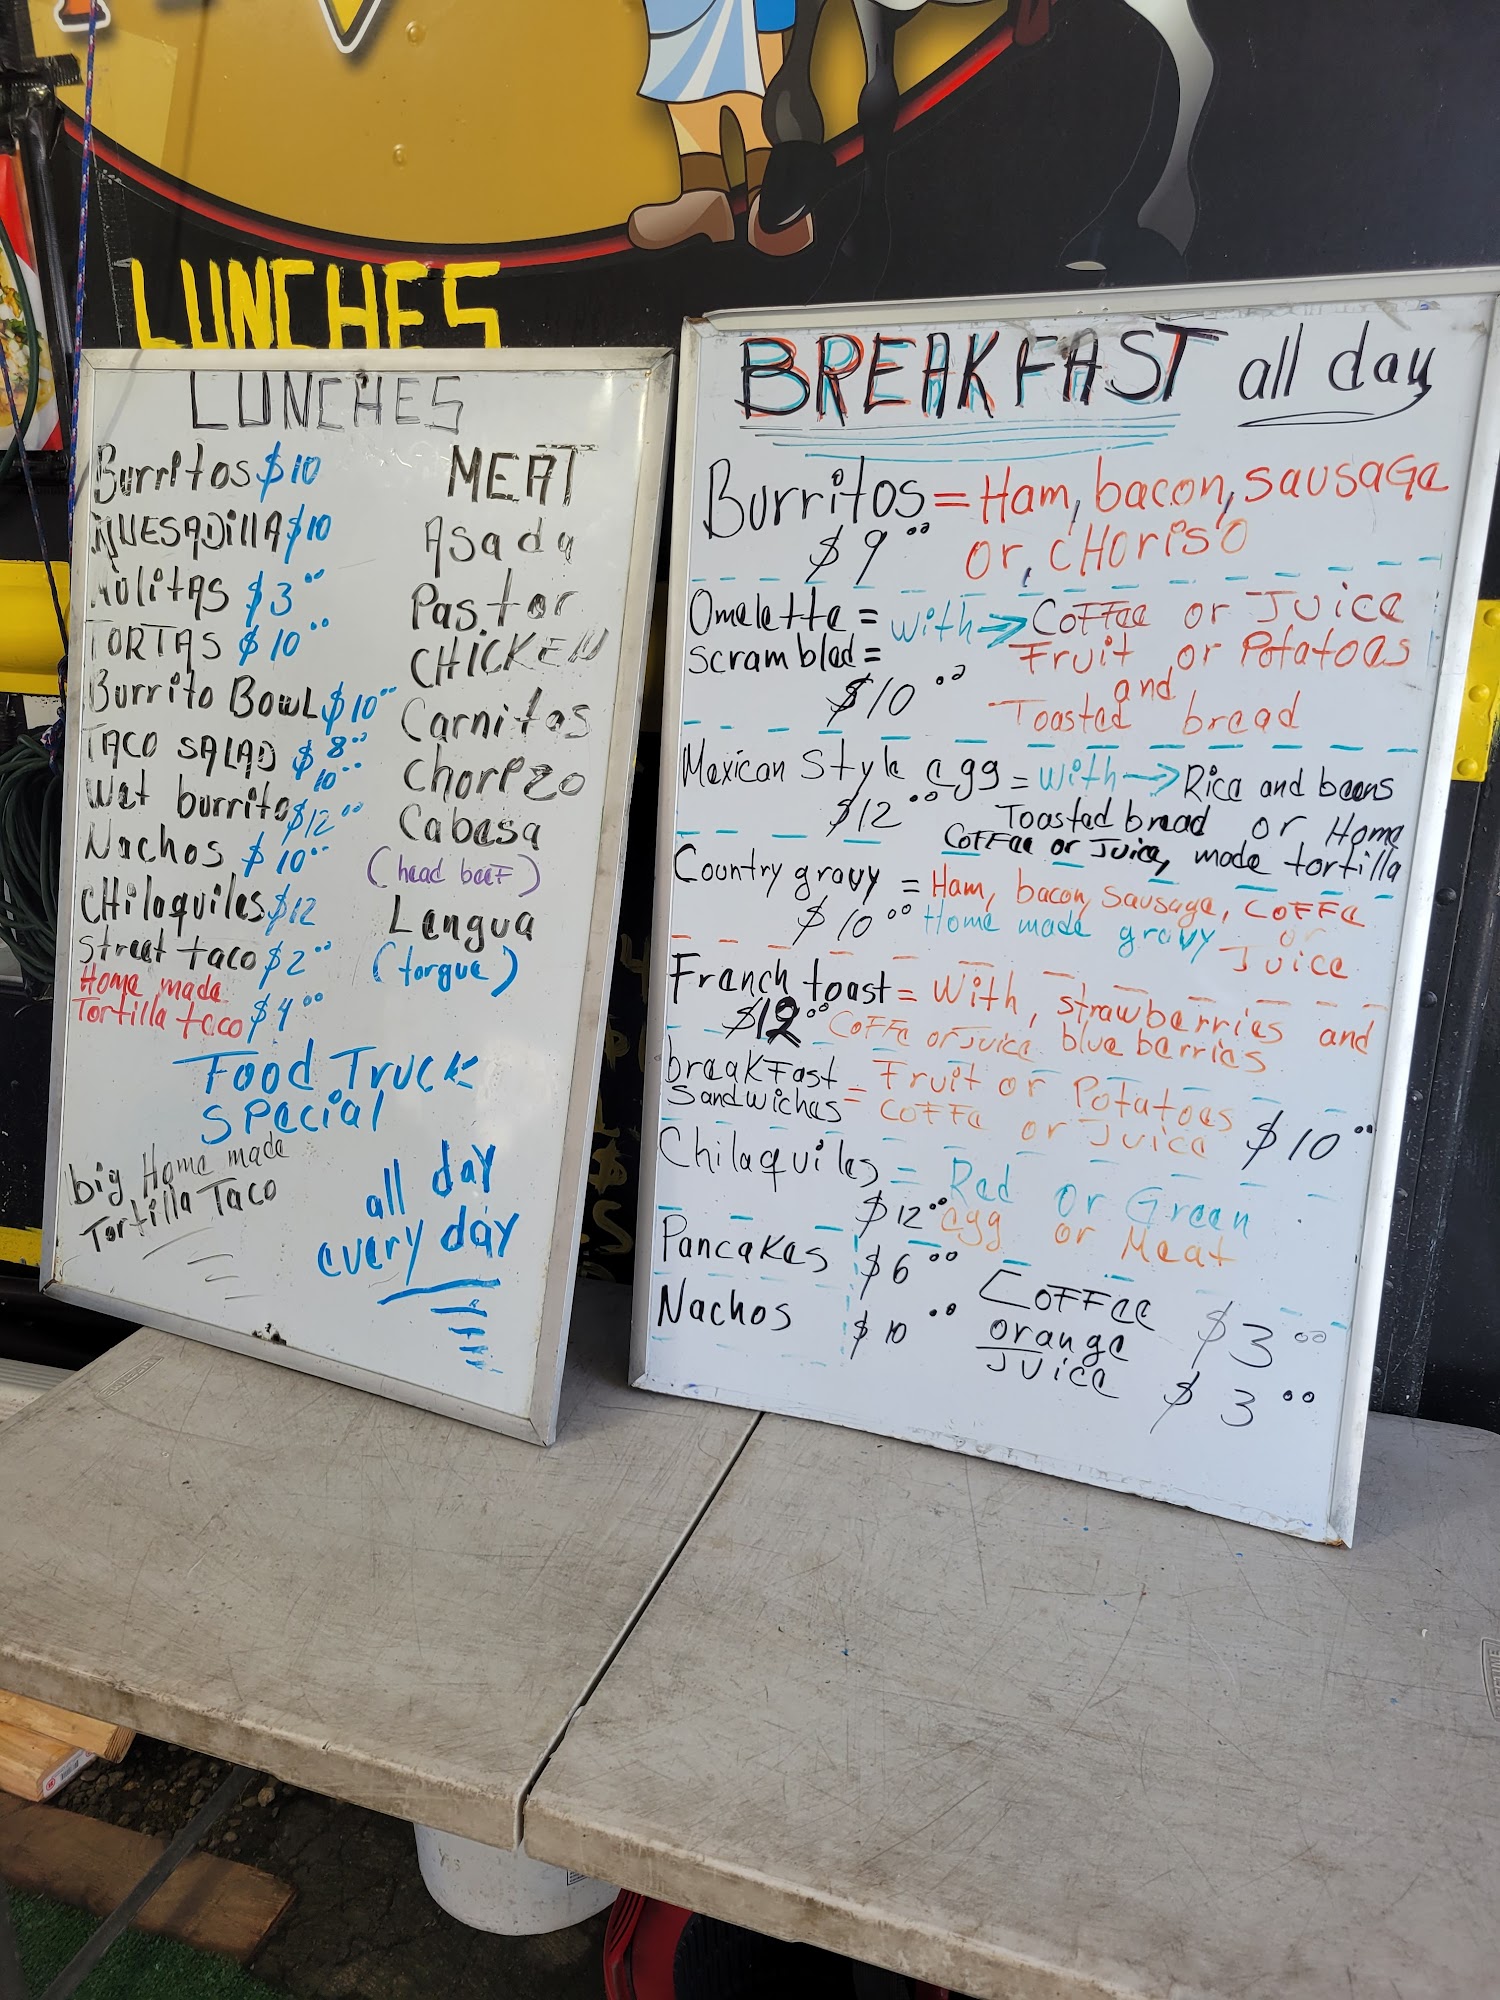 LUNCHES
LUNCHES
Burritos $10
QUESADillA $10
MulitAS $3.00
TORTAS $10.00
Burrito BowL $10.00
TACO SALAD $8.00
10.00
Wet burrito $12.00
Nachos $10.00
CHilaquiles $12
Street taco $2.00
Home made
Tortilla taco $4.00
MEAT
Asada
Pastor
CHICKEN
Carnitas
Chorizo
Cabesa
(head beeF)
Lengua
(torgue)
Food Truck
special
big Home made
Tortilla Taco
all day
every day
BREAKFAST all day
Burritos = Ham, bacon, sausage
$9.00 or, cHoriso
Omelette = with → CoFFee or Juice
scrambled = Fruit or Potatoes
$10.00 and
Toasted bread
Mexican Style egg = with → Rice and beans
$12.00 Toasted bread or Home
CoFFee or Juice, made tortilla
Country gravy = Ham, bacon, sausage, CoFFe
$10.00 Home made gravy or
Juice
French toast = With, strawberries and
$12.00 CoFFe or Juice blueberries
breakFast = Fruit or Potatoes
Sandwiches = CoFFe or Juice $10.00
Chilaquiles = Red or Green
$12.00 egg or Meat
Pancakes $6.00
Nachos $10.00
CoFFee $3.00
orange
Juice $3.00